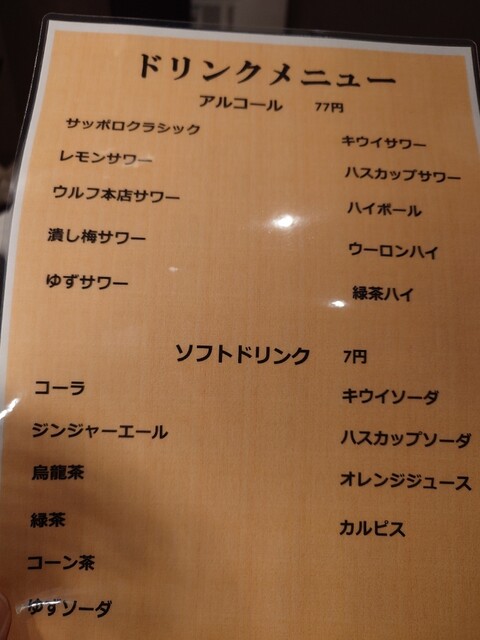 ドリンクメニュー
アルコール 77円
サッポロクラシック
レモンサワー
ウルフ本店サワー
潰し梅サワー
ゆずサワー
キウイサワー
ハスカップサワー
ハイボール
ウーロンハイ
緑茶ハイ
ソフトドリンク 7円
コーラ
ジンジャーエール
烏龍茶
緑茶
コーン茶
ゆずソーダ
キウイソーダ
ハスカップソーダ
オレンジジュース
カルピス